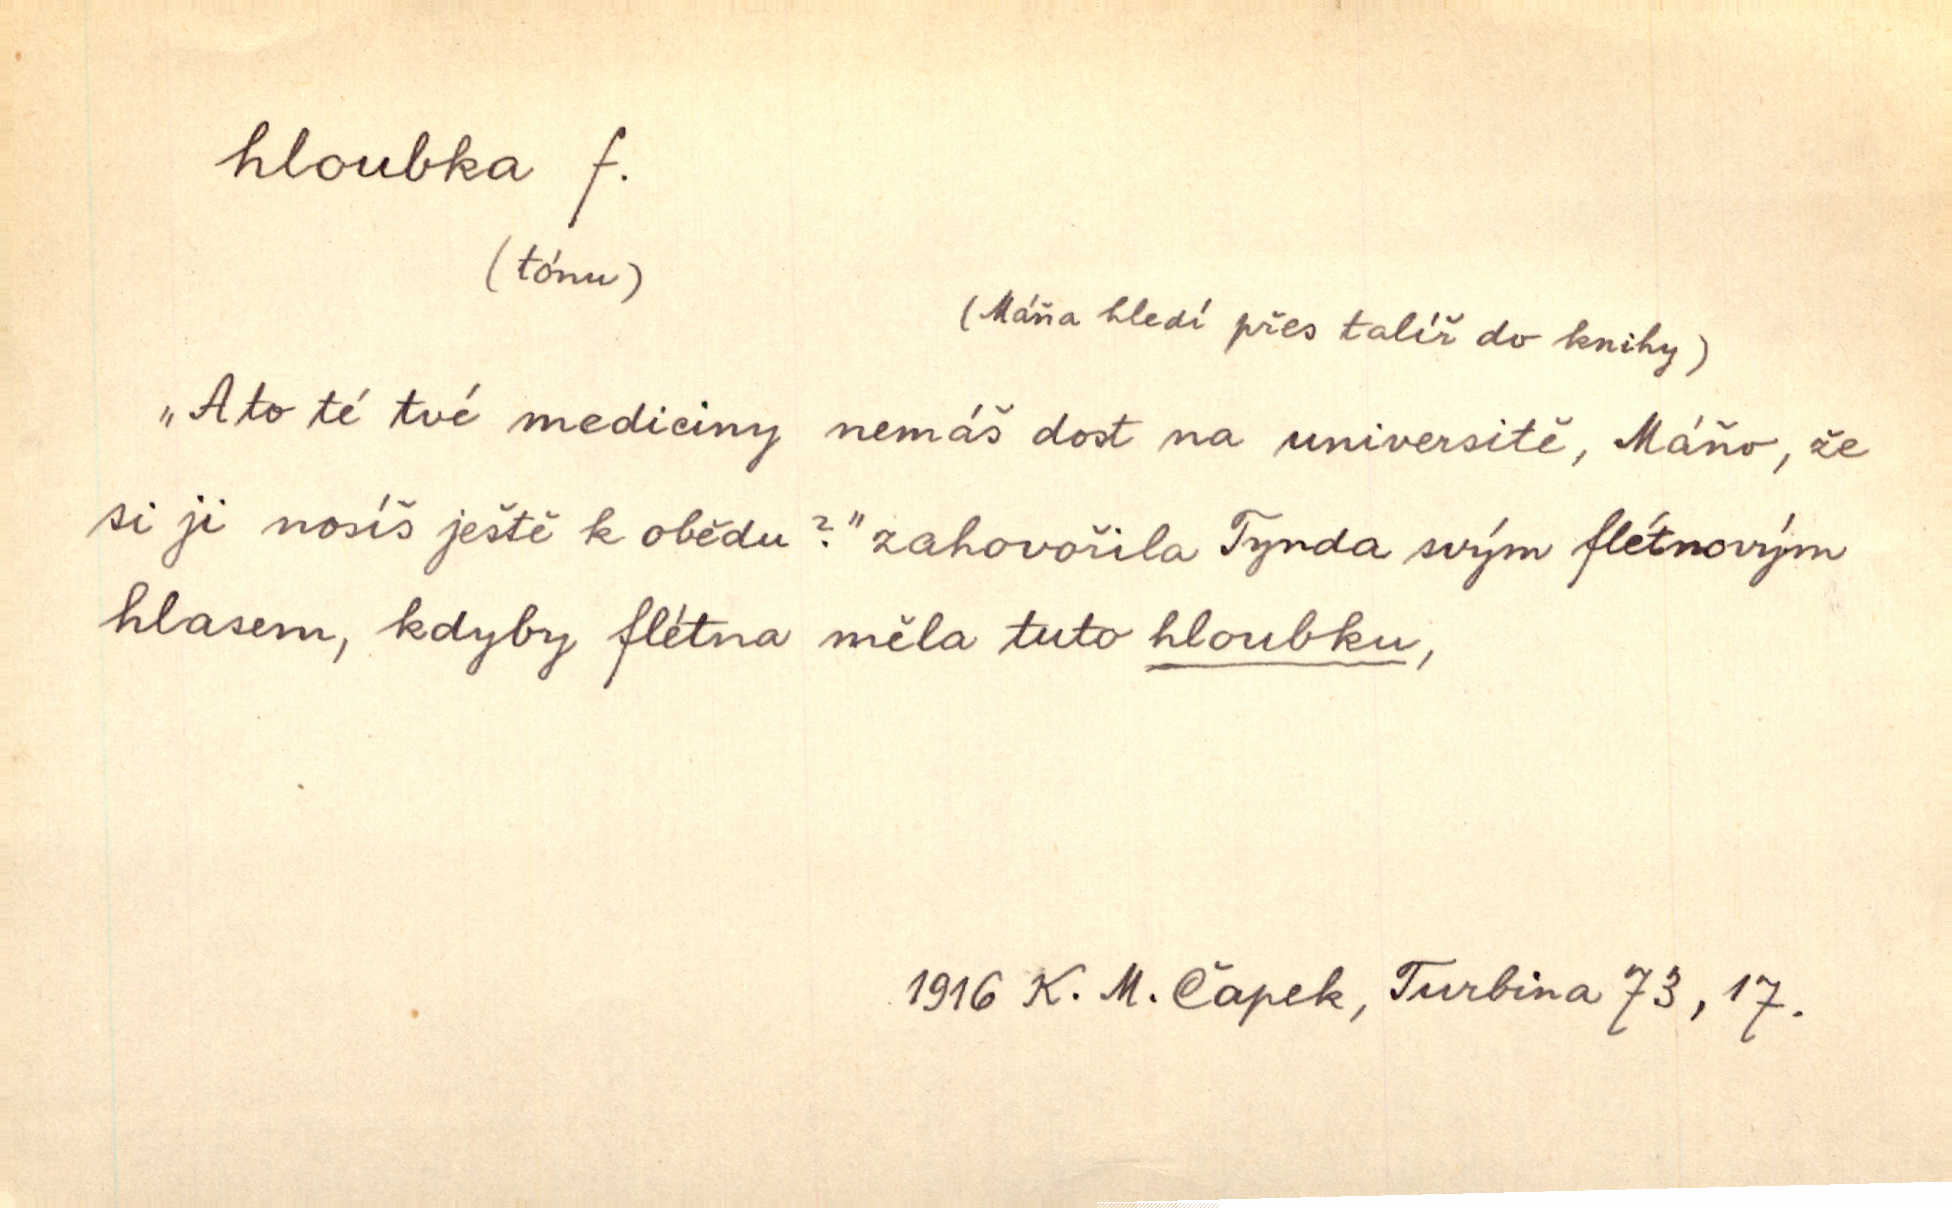 hloubka f.
(tónu)
(Máňa hledí přes talíř do knihy)
„A to té tvé mediciny nemáš dost na universitě, Máňo, že
si ji nosíš ještě k obědu?" zahovořila Tynda svým flétnovým
hlasem, kdyby flétna měla tuto hloubku,
1916 K. M. Čapek, Turbina 73, 17.